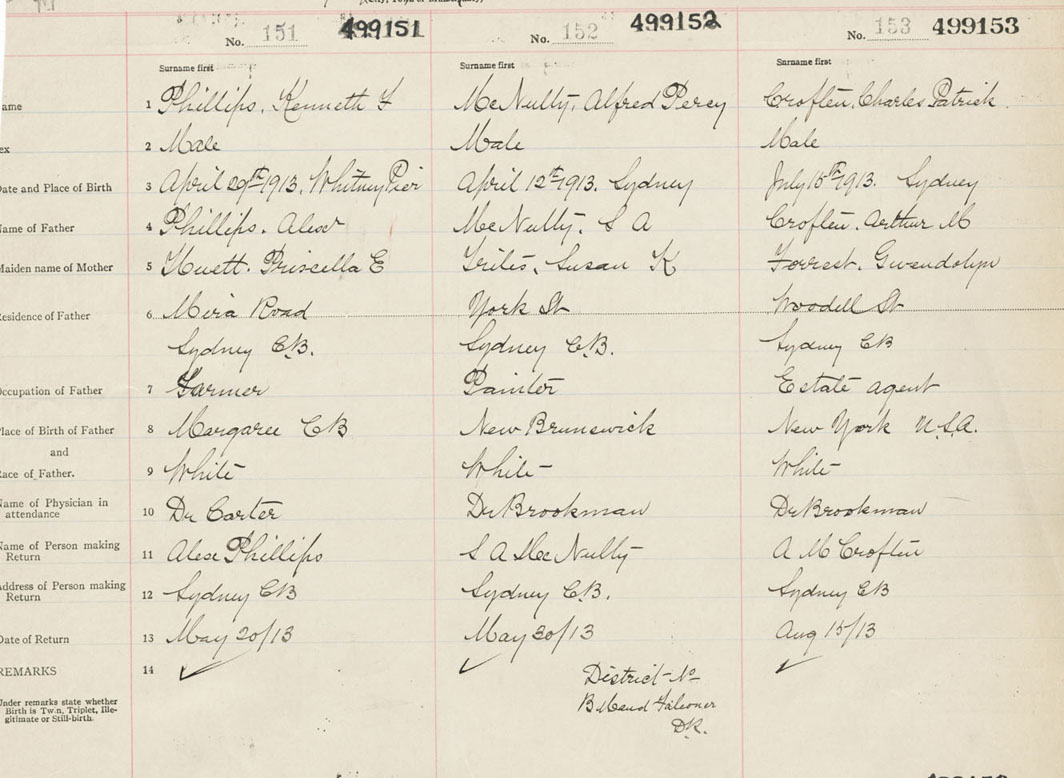 No. 151 499151 No. 152 499152 No. 153 499153
Surname first Surname first Surname first
ame 1 Phillips, Kenneth F McNulty, Alfred Percy Croften, Charles Patrick
ex 2 Male Male Male
Date and Place of Birth 3 April 29th 1913. Whitney Pier April 12th 1913. Sydney July 15th 1913. Sydney
Name of Father 4 Phillips. Alex McNulty, S A Croften, Arthur M
Maiden name of Mother 5 Huett. Priscella E Trites, Susan K Forrest. Gwendolyn
Residence of Father 6 Mira Road York St Woodell St
Sydney CB. Sydney C.B. Sydney CB
Occupation of Father 7 Farmer Painter Estate agent
Place of Birth of Father 8 Margaree CB New Brunswick New York U.S.A.
and
Race of Father. 9 White White White
Name of Physician in attendance 10 Dr Carter Dr Brookman Dr Brookman
Name of Person making Return 11 Alex Phillips S A McNulty A M Croften
Address of Person making Return 12 Sydney CB Sydney C.B. Sydney CB
Date of Return 13 May 20/13 May 30/13 Aug 15/13
REMARKS 14 ✓ ✓ ✓
Under remarks state whether Birth is Twin, Triplet, Illegitimate or Still-birth.
District No
B Maud Falconer
D.R.